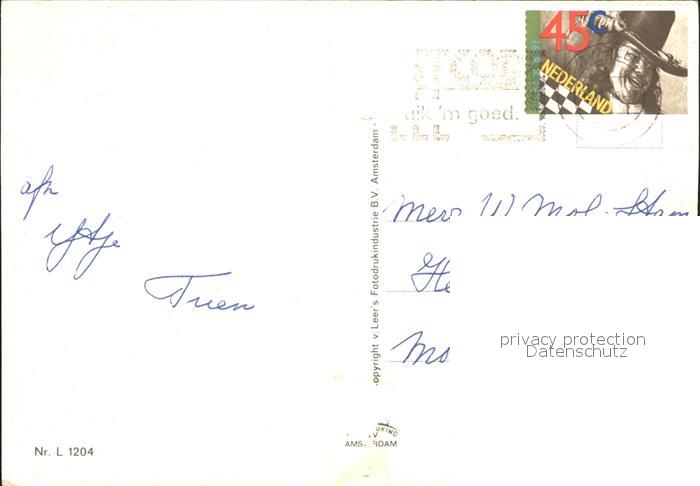 45 C
NEDERLAND
'm goed.
afz
Ytje
Trien
Copyright v. Leer's Fotodrukindustrie B.V. Amsterdam.
Mevr W Mol
He
Mo
privacy protection
Datenschutz
AMSTERDAM
Nr. L 1204